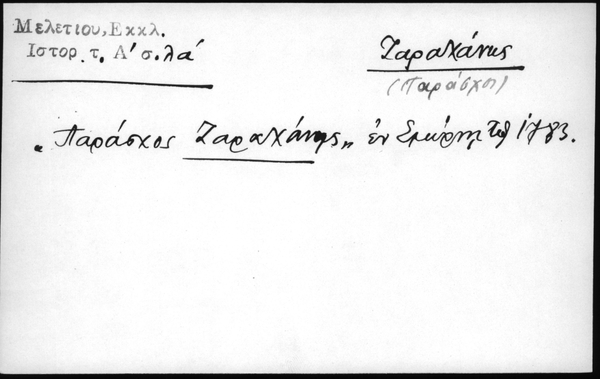 Μελετίου, Εκκλ.
Ιστορ. τ. Α' σ. λα'
Ζαραχάνης
(Παράσχος)
"Παράσχος Ζαραχάνης" ἐν Σμύρνῃ τῷ 1783.